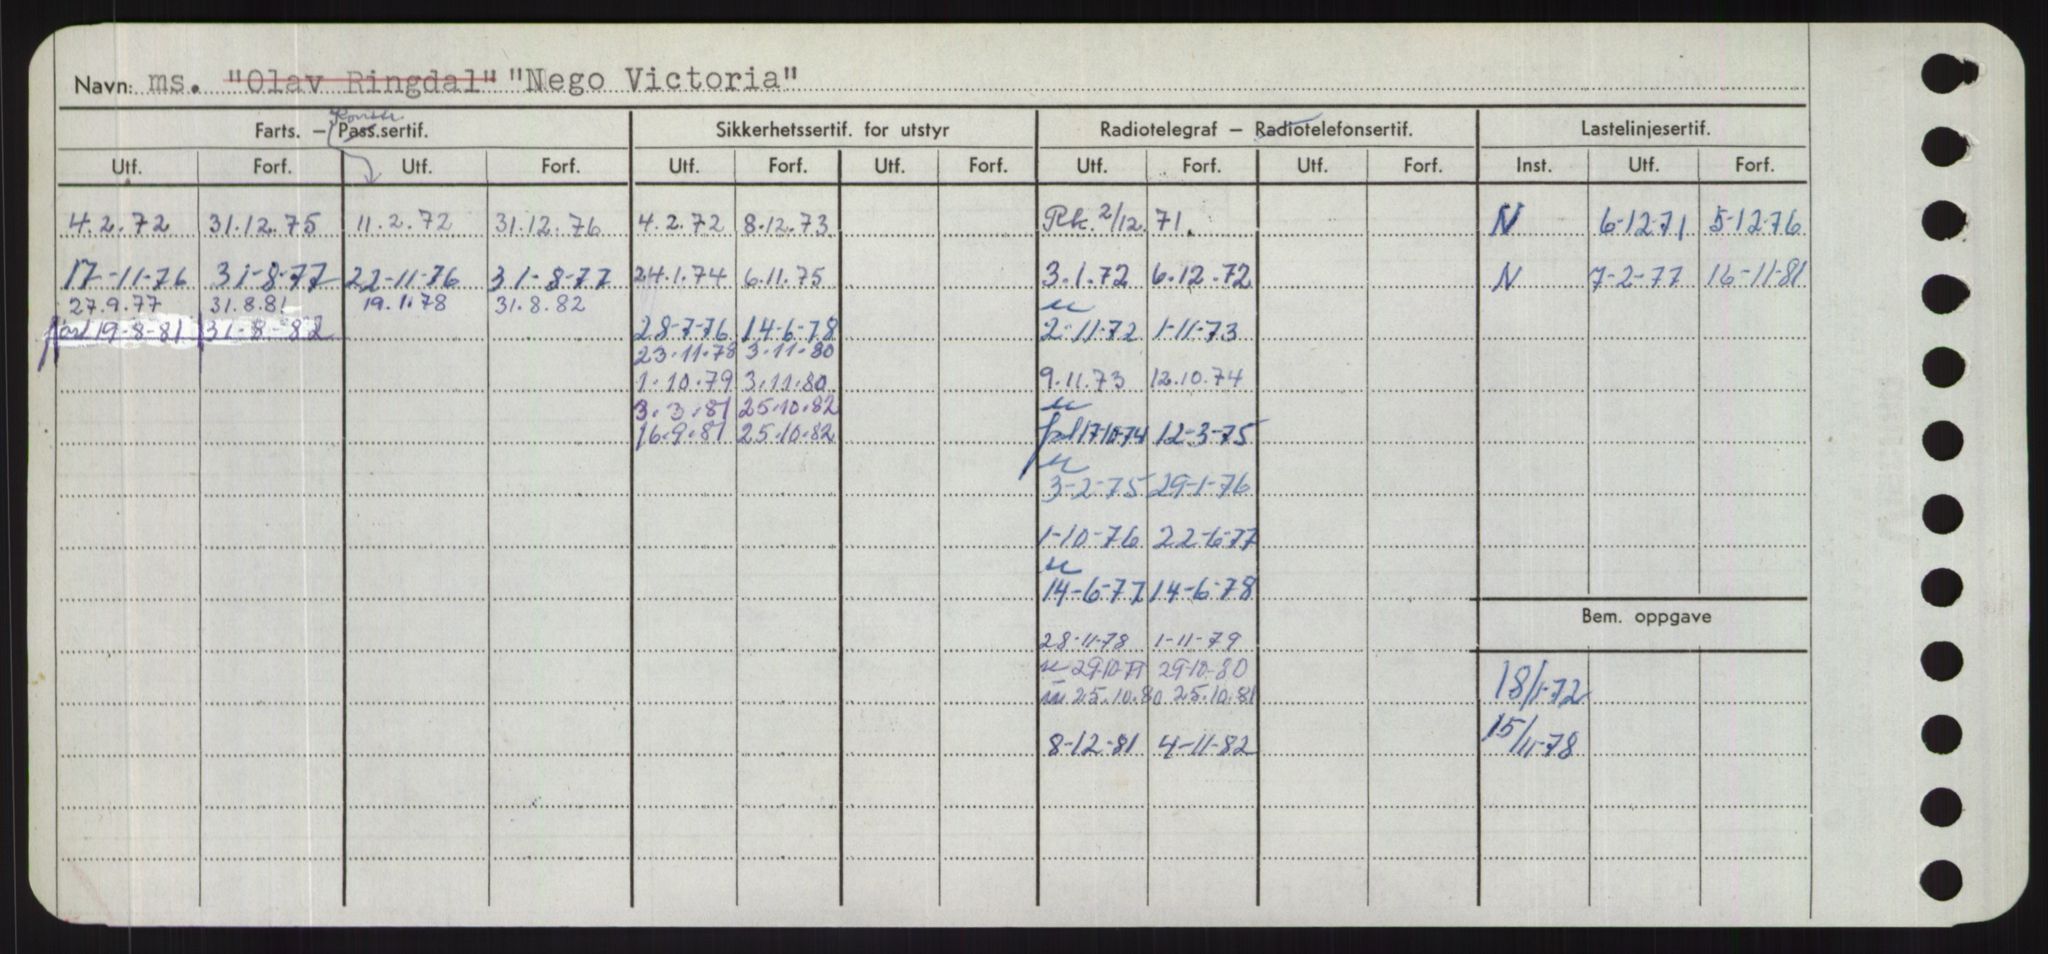 Navn: ms. "Olav Ringdal" "Nego Victoria"
Konstr.
Farts. – Pass.sertif. Sikkerhetssertif. for utstyr Radiotelegraf – Radiotelefonsertif. Lastelinjesertif.
Utf. Forf. Utf. Forf. Utf. Forf. Utf. Forf. Utf. Forf. Utf. Forf. Inst. Utf. Forf.
4.2.72 31.12.75 11.2.72 31.12.76 4.2.72 8.12.73 Rk. 2/12. 71. N 6-12-71 5-12-76
17-11-76 31-8-77 22-11-76 31-8-77 24.1.74 6.11.75 3.1.72 6.12.72 N 7-2-77 16-11-81
27.9.77 31.8.81 19.1.78 31.8.82
forl 19-8-81 31-8-82 28-7-76 14-6-78 2-11-72 1-11-73
23.11.78 3.11.80
1.10.79 3.11.80 9.11.73 12.10.74
3.3.81 25.10.82
16.9.81 25.10.82 forl 17-10-74 12-3-75
3-2-75 29-1-76
1-10-76 22-6-77
14-6-77 14-6-78
Bem. oppgave
28-11-78 1-11-79
29-10-79 29-10-80
25.10.80 25.10.81 18/1-72
8-12-81 4-11-82 15/11-78